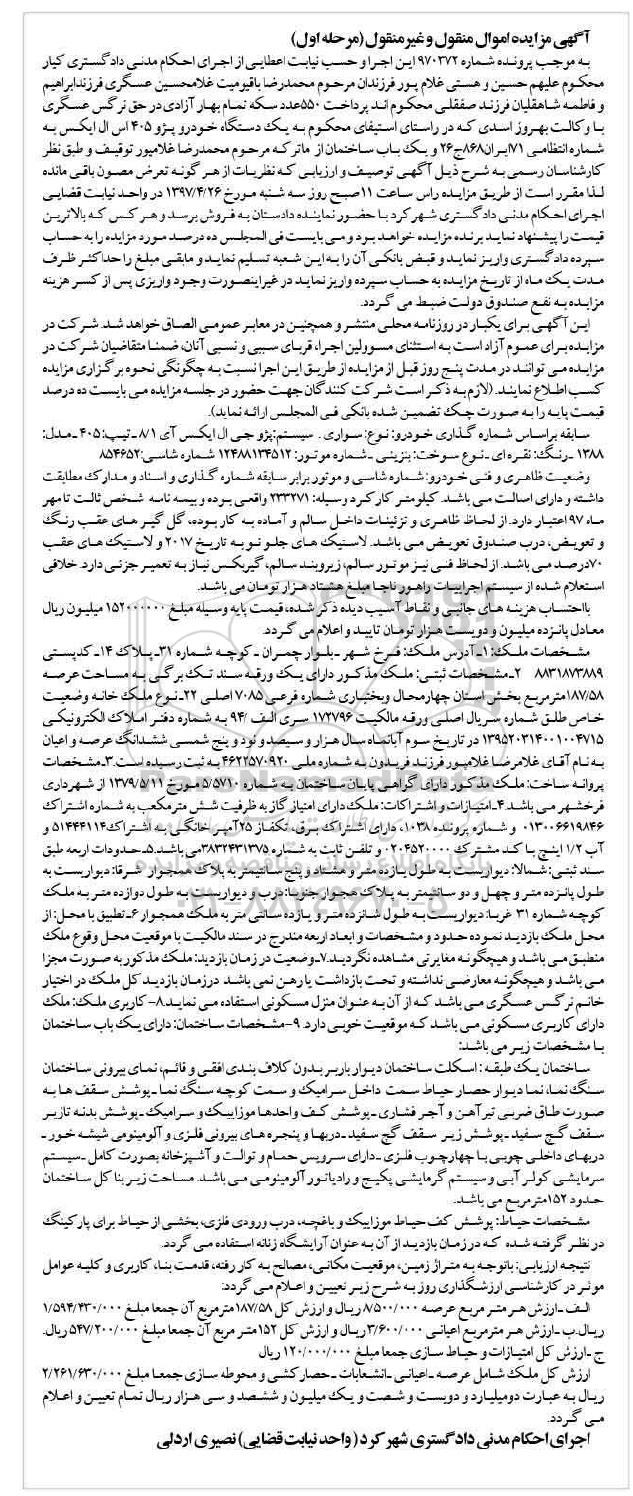 آگهی مزایده اموال منقول و غیرمنقول (مرحله اول)
به موجب پرونده شماره ۹۷۰۳۷۲ این اجرا و حسب نیابت اعطایی از اجرای احکام مدنی دادگستری کیار
محکوم علیهم حسین و هستی غلام پور فرزندان مرحوم محمدرضا باقیومیت غلامحسین عسگری فرزندابراهیم
و فاطمه شاهقلیان فرزند صفقلی محکوم اند پرداخت ۵۵۰عدد سکه تمام بهار آزادی در حق نرگس عسگری
با وکالت بهروز اسدی که در راستای استیفای محکوم به یک دستگاه خودرو پژو ۴۰۵ اس ال ایکس به
شماره انتظامی ۷۱ایران۸۶۸ج۲۶ و یک باب ساختمان از ماترکه مرحوم محمدرضا غلامپور توقیف و طبق نظر
کارشناسان رسمی به شرح ذیل آگهی توصیف و ارزیابی که نظریات از هر گونه تعرض مصون باقی مانده
لذا مقرر است از طریق مزایده راس ساعت ۱۱صبح روز سه شنبه مورخ ۱۳۹۷/۴/۲۶ در واحد نیابت قضایی
اجرای احکام مدنی دادگستری شهرکرد با حضور نماینده دادستان به فروش برسد و هر کس که بالاترین
قیمت را پیشنهاد نماید برنده مزایده خواهد بود و می بایست فی المجلس ده درصد مورد مزایده را به حساب
سپرده دادگستری واریز نماید و قبض بانکی آن را به این شعبه تسلیم نماید و مابقی مبلغ را حداکثر ظرف
مدت یک ماه از تاریخ مزایده به حساب سپرده واریز نماید در غیر اینصورت وجود واریزی پس از کسر هزینه
مزایده به نفع صندوق دولت ضبط می گردد.
این آگهی برای یکبار در روزنامه محلی منتشر و همچنین در معابر عمومی الصاق خواهد شد. شرکت در
مزایده برای عموم آزاد است به استثنای مسوولین اجرا، قربای سببی و نسبی آنان، ضمنا متقاضیان شرکت در
مزایده می توانند در مدت پنج روز قبل از مزایده از طریق این اجرا نسبت به چگونگی نحوه برگزاری مزایده
کسب اطلاع نمایند. (لازم به ذکر است شرکت کنندگان جهت حضور در جلسه مزایده می بایست ده درصد
قیمت پایه را به صورت چک تضمین شده بانکی فی المجلس ارائه نماید).
سابقه براساس شماره گذاری خودرو: نوع: سواری . سیستم:پژو جی ال ایکس آی ۸/۱ ـ تیپ: ۴۰۵ ـ مدل:
۱۳۸۸ ـ رنگ: نقره ای ـ نوع سوخت: بنزینی ـ شماره موتور: ۱۲۴۸۸۱۳۴۵۱۲ شماره شاسی:۸۵۴۶۵۲
وضعیت ظاهری و فنی خودرو: شماره شاسی و موتور برابر سابقه شماره گذاری و اسناد و مدارک مطابقت
داشته و دارای اصالت می باشد. کیلومتر کارکرد وسیله: ۲۳۳۲۷۱ واقعی بوده و بیمه نامه شخص ثالث تا مهر
ماه ۹۷ اعتبار دارد. از لحاظ ظاهری و تزئینات داخل سالم و آماده به کار بوده، گل گیر های عقب رنگ
و تعویض، درب صندوق تعویض می باشد. لاستیک های جلو نو به تاریخ ۲۰۱۷ و لاستیک های عقب
۷۰درصد می باشد. از لحاظ فنی نیز موتور سالم، زیروبند سالم، گیربکس نیاز به تعمیر جزئی دارد. خلافی
استعلام شده از سیستم اجراییات راهور ناجا مبلغ هشتاد هزار تومان می باشد.
بااحتساب هزینه های جانبی و نقاط آسیب دیده ذکر شده، قیمت پایه وسیله مبلغ ۱۵۲۰۰۰۰۰۰ میلیون ریال
معادل پانزده میلیون و دویست هزار تومان تایید و اعلام می گردد.
مشخصات ملک: ۱ـ آدرس ملک: فرخ شهر ـ بلوار چمران ـ کوچه شماره ۳۱ـ پلاک ۱۴ـ کدپستی
۸۸۳۱۸۷۳۸۸۹ ۲ـ مشخصات ثبتی: ملک مذکور دارای یک ورقه سند تک برگی به مساحت عرصه
۱۸۷/۵۸مترمربع بخش استان چهارمحال وبختیاری شماره فرعی ۷۰۸۵ اصلی ۲۲ـ نوع ملک خانه وضعیت
خاص طلق شماره سریال اصلی ورقه مالکیت ۱۷۲۷۹۶ سری الف /۹۴ به شماره دفتر املاک الکترونیکی
۱۳۹۵۲۰۳۱۴۰۰۱۰۰۴۷۱۵ در تاریخ سوم آبانماه سال هزار و سیصد و نود و پنج شمسی ششدانگ عرصه و اعیان
به نام آقای غلامرضا غلامپور فرزند فریدون به شماره ملی ۴۶۲۲۵۷۰۹۲۰ به ثبت رسیده است.۳ـ مشخصات
پروانه ساخت: ملک مذکور دارای گواهی پایان ساختمان به شماره ۵/۵۷۱۰ مورخ ۱۳۷۹/۵/۱۱ از شهرداری
فرخشهر می باشد.۴ـ امتیازات و اشتراکات: ملک دارای امتیاز گاز به ظرفیت شش مترمکعب به شماره اشتراک
۰۱۳۰۰۶۶۱۹۸۴۶ و شماره پرونده ۱۰۳۸، دارای اشتراک برق، تکفاز ۲۵آمپر خانگی به اشتراک ۵۱۴۴۴۱۱۴ و
آب ۱/۲ اینچ با کد مشترک ۰۲۰۴۵۲۰۰۰۰ و تلفن ثابت به شماره ۳۸۳۲۴۳۱۳۷۵می باشد.۵ـ حدودات اربعه طبق
سند ثبتی: شمالا: دیواریست به طول یازده متر و هشتاد و پنج سانتیمتر به پلاک همجوار شرقا: دیواریست به
طول پانزده متر و چهل و دو سانتیمتر به پلاک همجوار جنوبا: درب و دیواریست به طول دوازده متر به ملک
کوچه شماره ۳۱ غربا: دیواریست به طول شانزده متر و یازده سانتی متر به ملک همجوار ۶ـ تطبیق با محل: از
محل ملک بازدید نموده حدود و مشخصات و ابعاد اربعه مندرج در سند مالکیت با موقعیت محل وقوع ملک
منطبق می باشد و هیچگونه مغایرتی مشاهده نگردید.۷ـ وضعیت در زمان بازدید: ملک مذکور به صورت مجزا
می باشد و هیچگونه معارضی نداشته و تحت بازداشت یا رهن نمی باشد درزمان بازدید کل ملک در اختیار
خانم نرگس عسگری می باشد که از آن به عنوان منزل مسکونی استفاده می نماید.۸ـ کاربری ملک: ملک
دارای کاربری مسکونی می باشد که موقعیت خوبی دارد. ۹-مشخصات ساختمان: دارای یک باب ساختمان
با مشخصات زیر می باشد:
ساختمان یک طبقه : اسکلت ساختمان دیوار باربر بدون کلاف بندی افقی و قائم، نمای بیرونی ساختمان
سنگ نما، نما دیوار حصار حیاط سمت داخل سرامیک و سمت کوچه سنگ نما ـ پوشش سقف ها به
صورت طاق ضربی تیرآهن و آجر فشاری ـ پوشش کف واحدها موزاییک و سرامیک ـ پوشش بدنه تا زیر
سقف گچ سفید ـ پوشش زیر سقف گچ سفید ـ دربها و پنجره های بیرونی فلزی و آلومینومی شیشه خور ـ
دربهای داخلی چوبی با چهارچوب فلزی ـ دارای سرویس حمام و توالت و آشپزخانه بصورت کامل ـ سیستم
سرمایشی کولر آبی و سیستم گرمایشی پکیج و رادیاتور آلومینومی می باشد. مساحت زیربنا کل ساختمان
حدود ۱۵۲مترمربع می باشد.
مشخصات حیاط: پوشش کف حیاط موزاییک و باغچه، درب ورودی فلزی، بخشی از حیاط برای پارکینگ
در نظر گرفته شده که درزمان بازدید از آن به عنوان آرایشگاه زنانه استفاده می گردد.
نتیجه ارزیابی: باتوجه به متراژ زمین، موقعیت مکانی، مصالح به کار رفته، قدمت بنا، کاربری و کلیه عوامل
موثر در کارشناسی ارزشگذاری روز به شرح زیر تعیین و اعلام می گردد:
الف ـ ارزش هر متر مربع عرصه ۸/۵۰۰/۰۰۰ ریال و ارزش کل ۱۸۷/۵۸ مترمربع آن جمعا مبلغ ۱/۵۹۴/۴۳۰/۰۰۰
ریال.ب ـ ارزش هر مترمربع اعیانی ۳/۶۰۰/۰۰۰ ریال و ارزش کل ۱۵۲متر مربع آن جمعا مبلغ ۵۴۷/۲۰۰/۰۰۰ ریال.
ج ـ ارزش کل امتیازات و حیاط سازی جمعا مبلغ ۱۲۰/۰۰۰/۰۰۰ ریال
ارزش کل ملک شامل عرصه ـ اعیانی ـ انشعابات ـ حصارکشی و محوطه سازی جمعا مبلغ ۲/۲۶۱/۶۳۰/۰۰۰
ریال به عبارت دومیلیارد و دویست و شصت و یک میلیون و ششصد و سی هزار ریال تمام تعیین و اعلام
می گردد.
اجرای احکام مدنی دادگستری شهرکرد ( واحد نیابت قضایی) نصیری اردلی